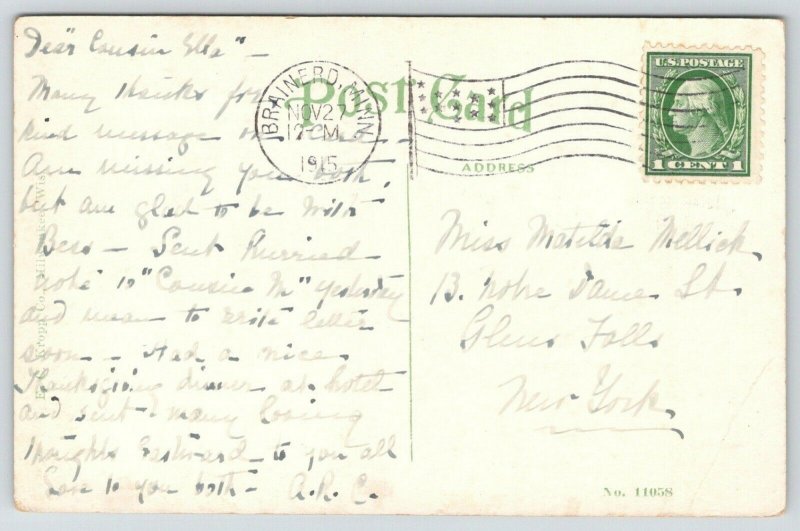 Dear "Cousin Ella" –
Many thanks for
kind message
Am missing you both,
but am glad to be with
Bess – Sent hurried
note to "Cousin M" yesterday
and mean to write letter
soon – Had a nice
Thanksgiving dinner at hotel
and sent many loving
thoughts Eastward – to you all
Love to you both – A.R.C.
Post Card
BRAINERD, MINN.
NOV 27
12-M
1915
U.S. POSTAGE
1 CENT 1
ADDRESS
Miss Matilda Mellick,
13. Notre Dame St.
Glens Falls
New York,
No. 11058